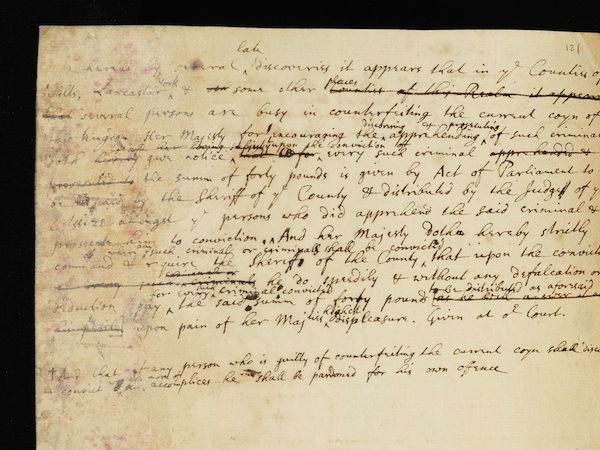 121
late
Whereas by several discoveries it appears that in ye Counties of
York
places
Wilts, Lancaster & some other Counties of this Realm it appears
several persons are busy in counterfeiting the current coyn of
discovering & prosecuting
this kingdom Her Majesty for encouraging the apprehending of such criminals
upon the conviction of
doth hereby give notice that for every such criminal apprehended &
prosecuted to the summ of forty pounds is given by Act of Parliament to
be paid by the Sheriff of ye County & distributed by the Judges of ye
Assizes amongst ye persons who did apprehend the said criminal &
prosecute him to conviction. And her Majesty doth hereby strictly
when such criminals or criminal shall be convicted
command & require the Sheriff of the County, that upon the conviction
of every such criminals he do speedily & without any defalcation or
for every criminal convicted
to be distributed as aforesaid
deduction pay the said summ of forty pounds as he will answer
highest
upon pain of her Majties displeasure. Given at or Court.
+ And that if any person who is guilty of counterfeiting the current coyn shall
convict two or more of his accomplices he shall be pardoned for his own offence